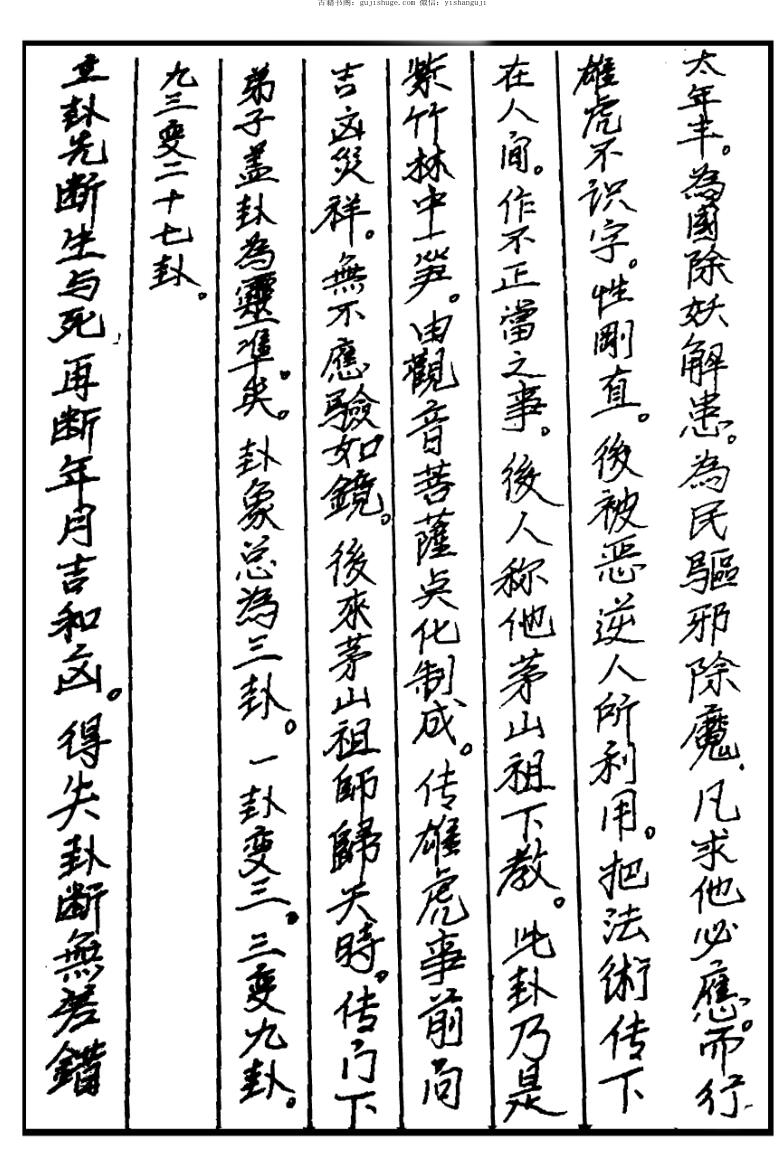 古籍书阁：gujishuge.com 微信：yishanguji
太年丰。為國除妖解患。為民驅邪除魔、凡求他必應。而行
雄虎不识字。性剛直。後被恶逆人所利用。把法術传下
在人间。作不正當之事。後人称他茅山祖下教。此卦乃是
紫竹林中一笋。由觀音菩薩点化制成。传雄虎事前问
吉凶災祥。無不應驗如鏡。後來茅山祖師歸天時。传门下
弟子盖卦為靈準矣。卦象总為三卦。一卦变三。三变九卦。
九三变二十七卦。
主卦先断生与死，再断年月吉和凶。得失卦断無差錯